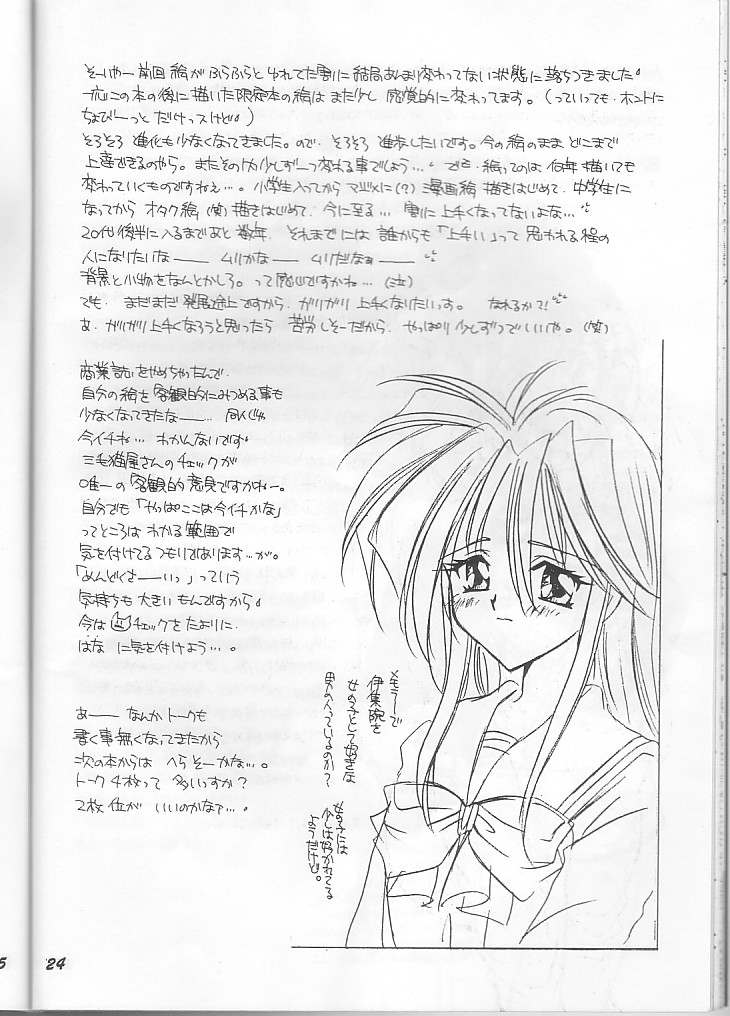 そーいやー前回 絵が ふらふらと ゆれてた割に 結局 あんまり変わってない 状態に 落ちつきました。
一応この本の後に描いた限定本の絵は また少し 感覚的に変わってます。(っていっても・ホントに
ちょびーっと だけっスけど。)
そろそろ 進化も少なくなってきました。ので・そろそろ 進歩したいです。今の絵のまま どこまで
上達できるのやら。またそのうち少しずーつ変わる事でしょう…。でも・絵ってのは 何年 描いても
変わっていくものですねぇ…。小学生入ってから マジメに(?)漫画絵 描きはじめて・中学生に
なってから オタク絵(笑)描きはじめて・今に至る… 割に上手くなってないよな…
20代後半に入るまであと 数年・それまでには 誰からも「上手い」って 思われる程の
人になりたいなー ムリかなー ムリだなぁー
背景と小物をなんとかしろ。って感じですかね…(泣)
でも・まだまだ 発展途上ですから・ガリガリ 上手くなりたいっす。なれるか?!
あ・ガリガリ上手くなろうと思ったら 苦労しそーだから・やっぱり少しずつでいいや。(笑)
商業誌をやめちゃったんで・
自分の絵を 客観的にみつめる事も
少なくなってきたなー… 同人じゃ
今イチね… わかんないです。
三毛猫屋さんのチェックが
唯一の 客観的意見ですかねー。
自分でも「やっぱここは今イチかな」
ってところは わかる範囲で
気を付けてるつもりではあります…が。
「めんどくさーいっ」っていう
気持ちも大きい もんですから。
今は チェックをたよりに・
はな に気を付けよう…。
あー なんかトークも
書く事無くなってきたから
次の本からは へらそーかな…。
トーク4枚って 多いっすか?
2枚位が いいのかなァ…。
メモラーで
伊集院を
女の子として好きな
男の人っているのか?
女の子には
少しは好かれてる
ようだけど。
24
5